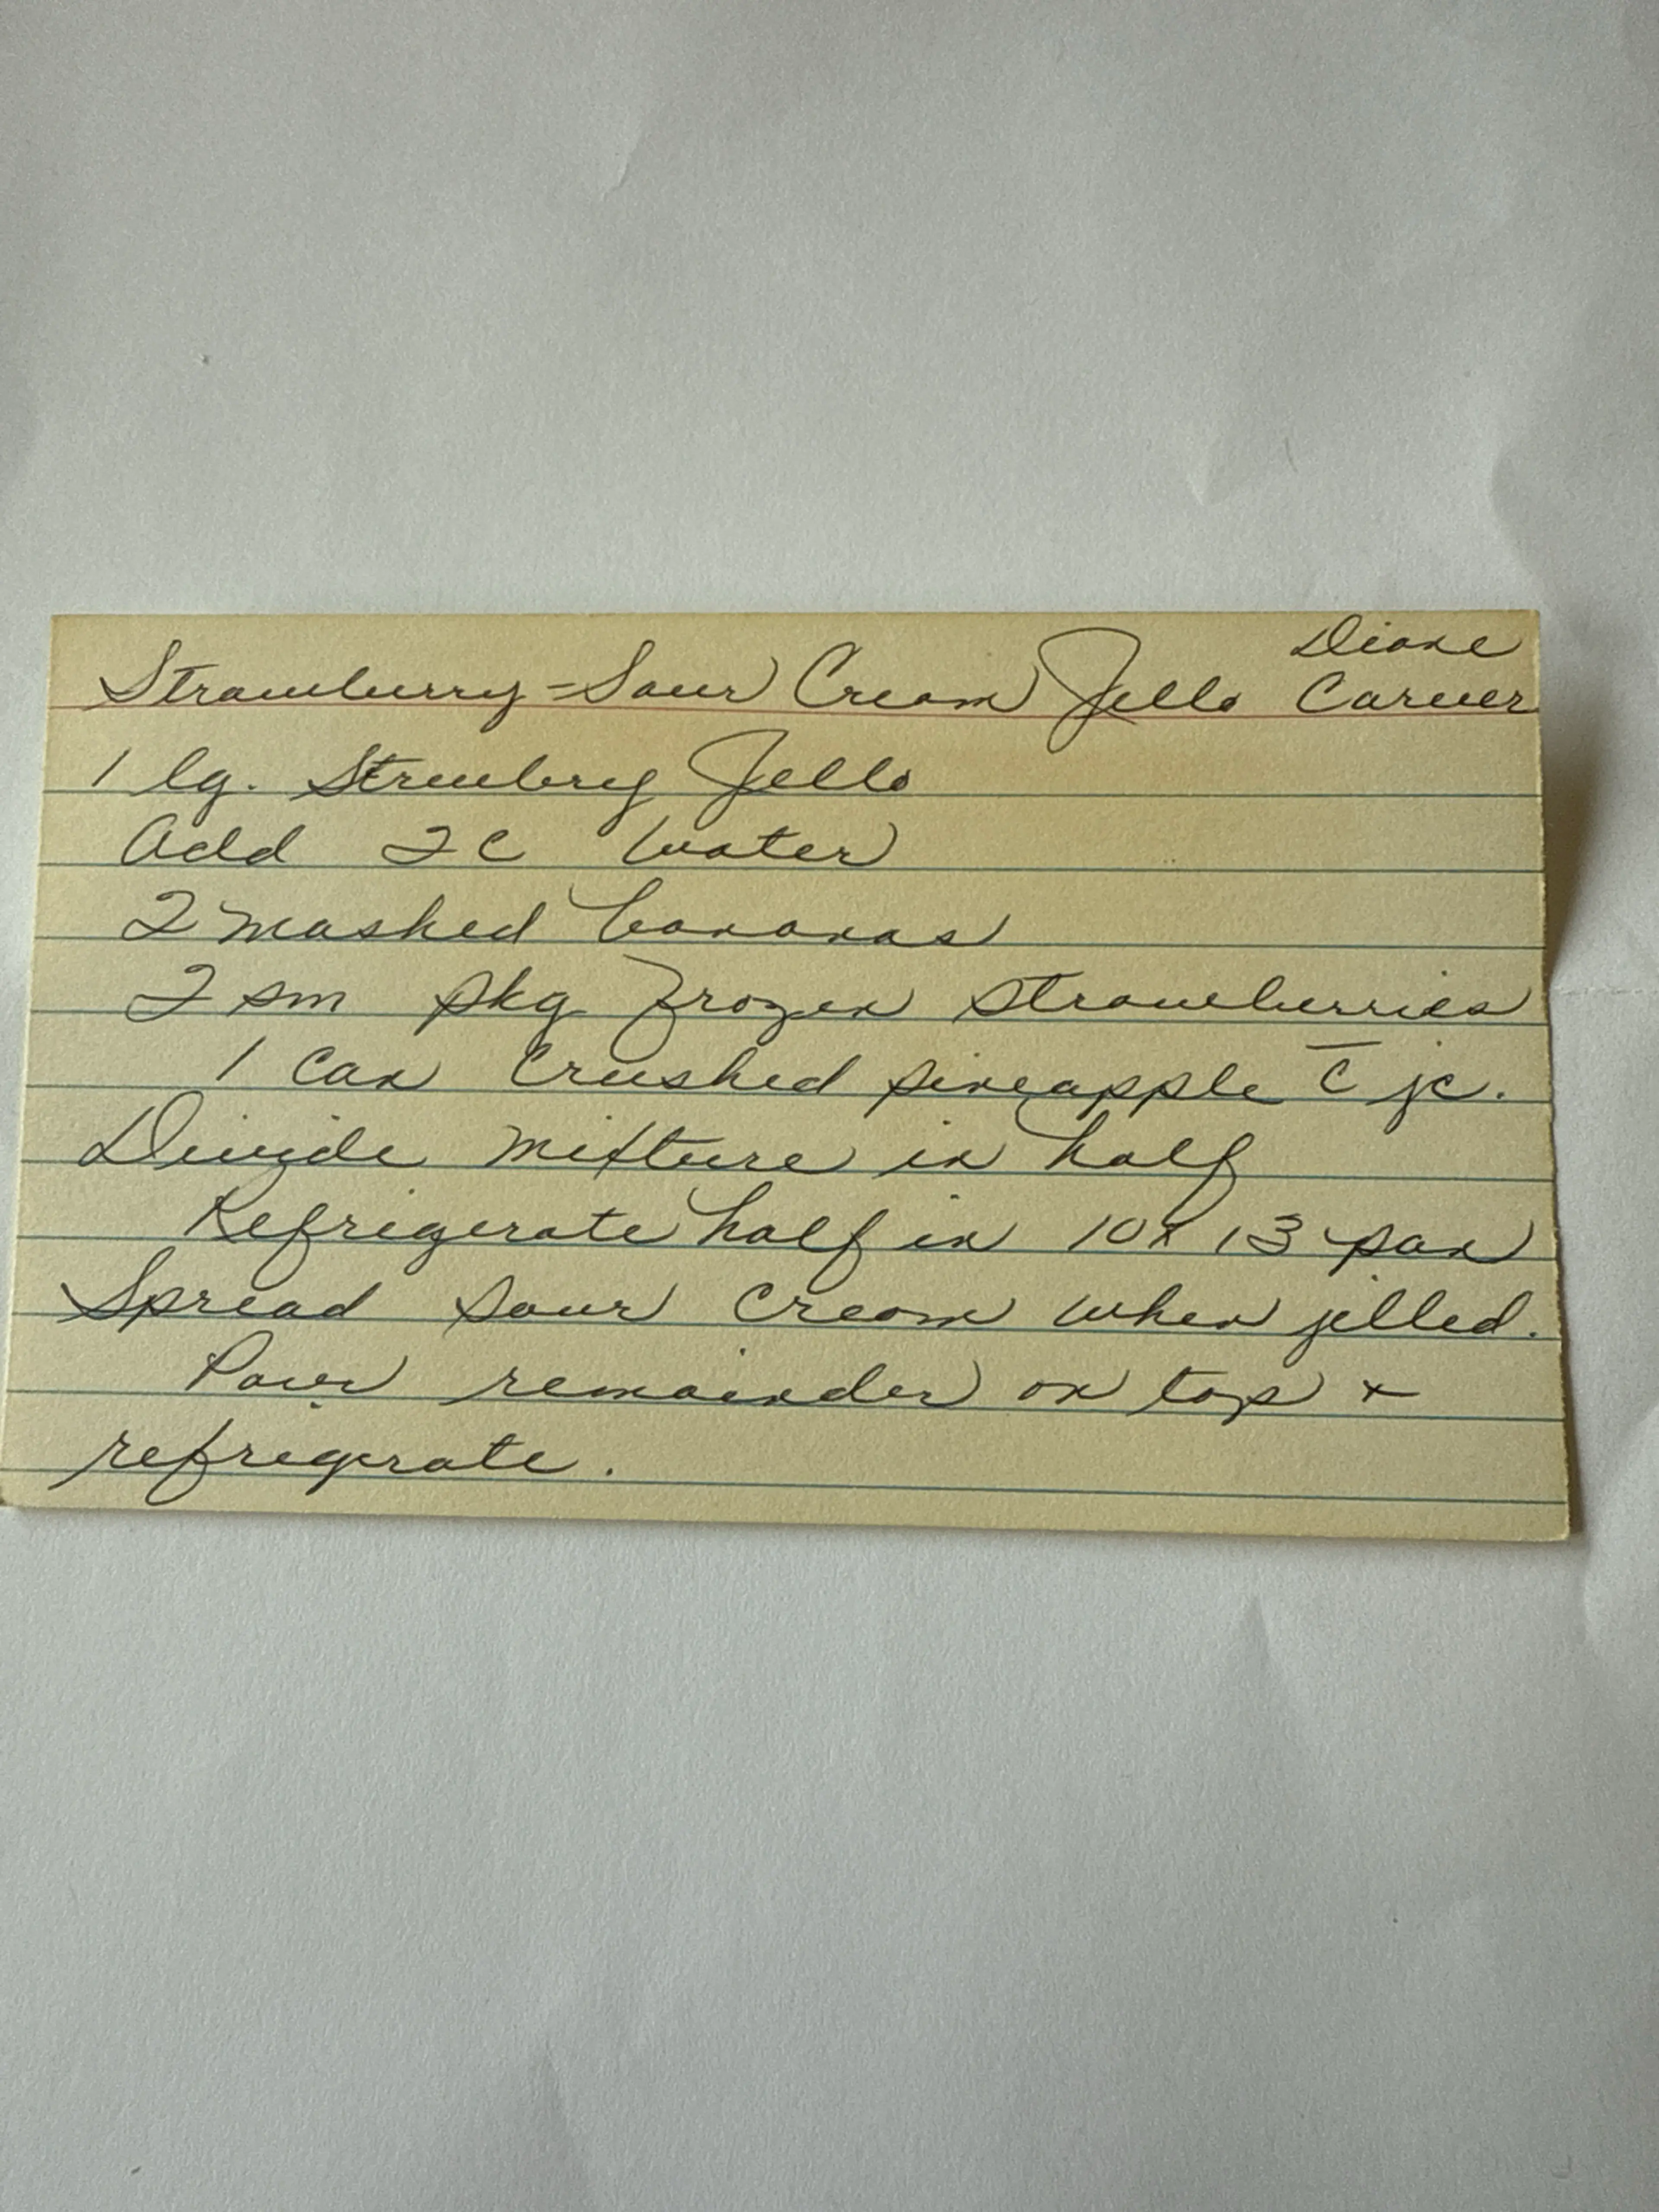 Diane
Strawberry-Sour Cream Jello Carver
1 lg. Strawbry Jello
Add 2 C Water
2 mashed bananas
2 sm pkg frozen strawberries
1 Can Crushed pineapple c̄ jc.
Divide Mixture in half
Refrigerate half in 10x13 pan
Spread sour cream when jelled.
Pour remainder on top +
refrigerate.